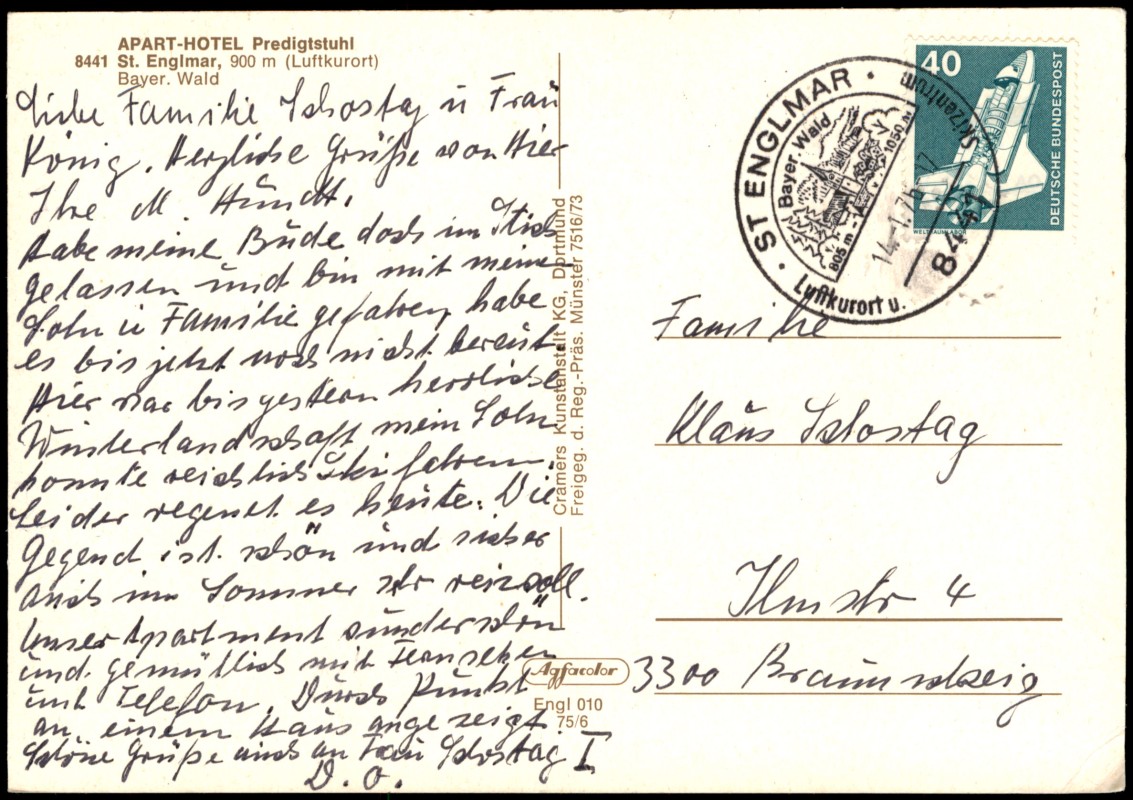 APART-HOTEL Predigtstuhl
8441 St. Englmar, 900 m (Luftkurort)
Bayer. Wald
Liebe Familie Schostag u Frau
König. Herzliche Grüße von Hier
Ihre M. Hundt.
Habe meine Bude doch im Stich
gelassen und bin mit meinem
Sohn u Familie gefahren, habe
es bis jetzt noch nicht bereut.
Hier war bis gestern herrliche
Winterlandschaft, mein Sohn
konnte reichlich Ski fahren.
Leider regenet es heute. Die
Gegend ist schön und sicher
auch im Sommer sehr reizvoll.
Unser Apartment wunderschön
und gemütlich mit Fernseher
und Telefon. Durch Punkt
an einem Haus angezeigt.
Schöne Grüße auch an Frau Schostag I
D. O.
Cramers Kunstanstalt KG, Dortmund
Freigeg. d. Reg.-Präs. Münster 7516/73
Agfacolor
Engl 010
75/6
ST ENGLMAR
Skizentrum
Bayer. Wald
805 m - 1050 m
14-1.76
8441
Luftkurort u.
40
DEUTSCHE BUNDESPOST
WELTRAUMLABOR
Familie
Klaus Schostag
Ilmstr 4
3300 Braunschweig